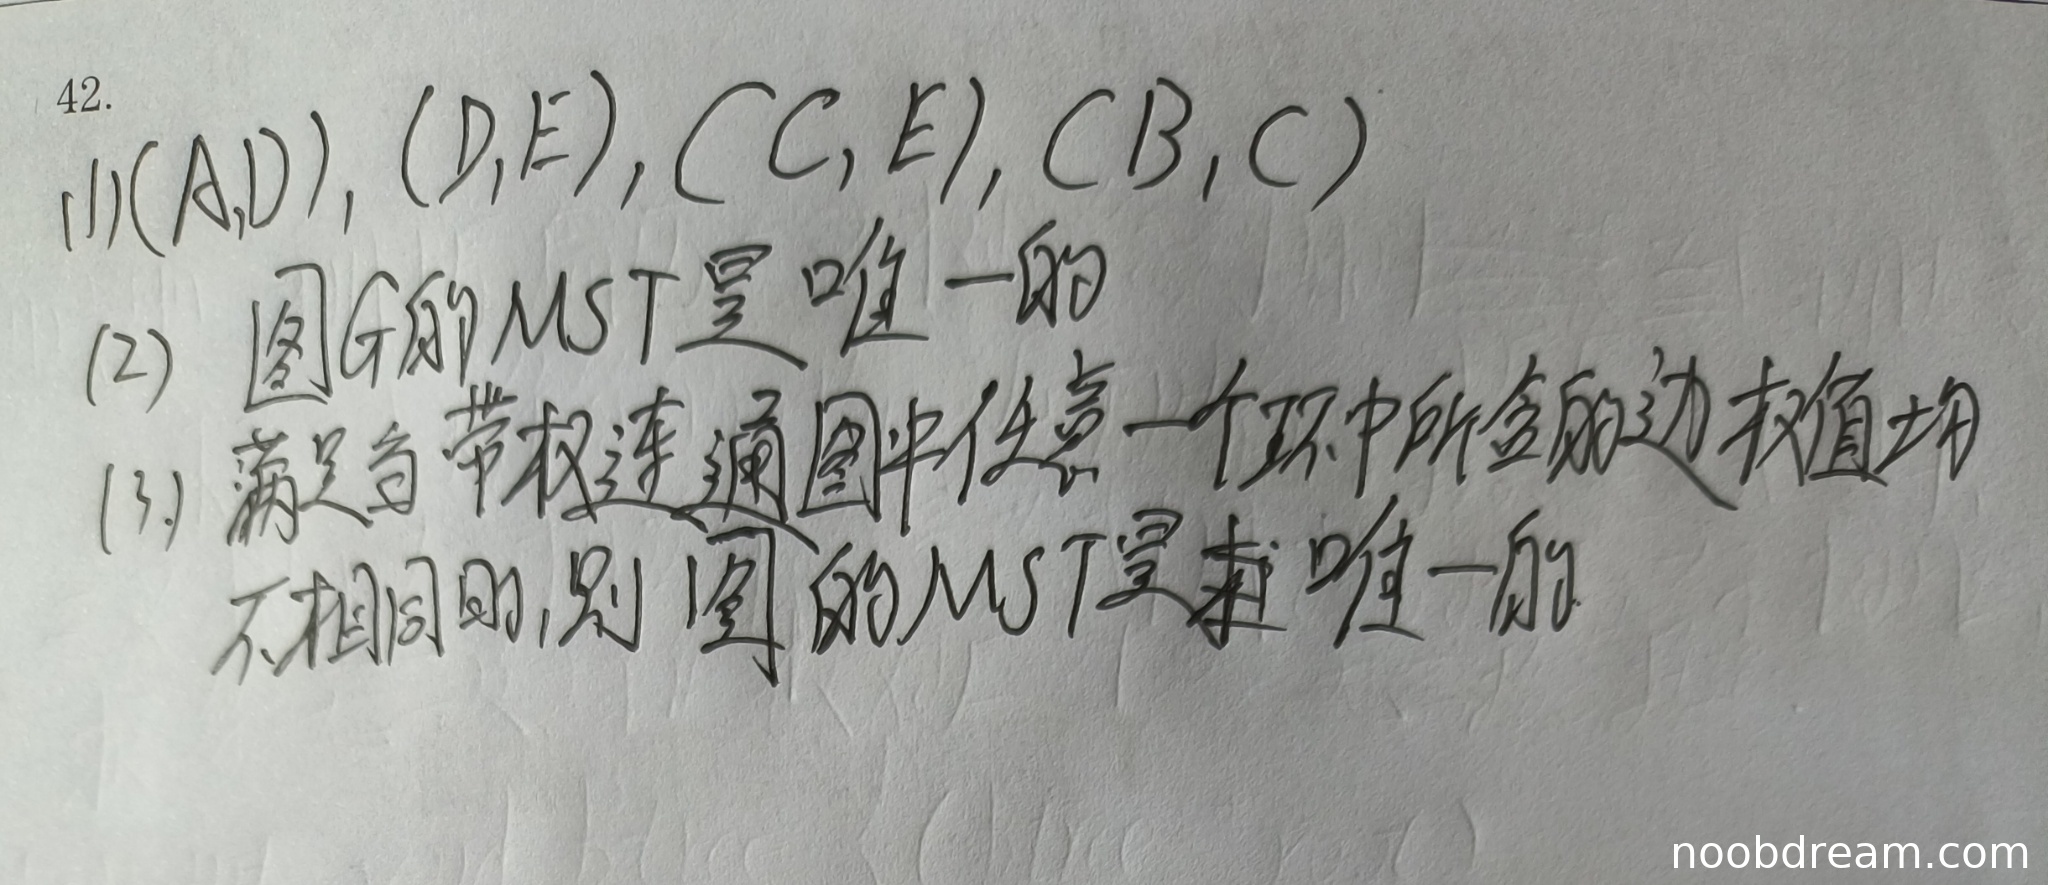 42.
(1)(A,D), (D,E), (C,E), (B,C)
(2) 图G的MST是唯一的
(3) 满足当带权连通图中任意一个环中所含的边权值均
不相同时,则图的MST是唯一的
noobdream.com